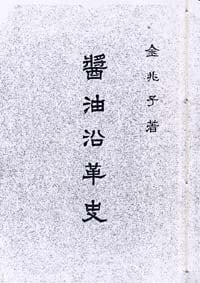 金兆子著
醬油沿革史